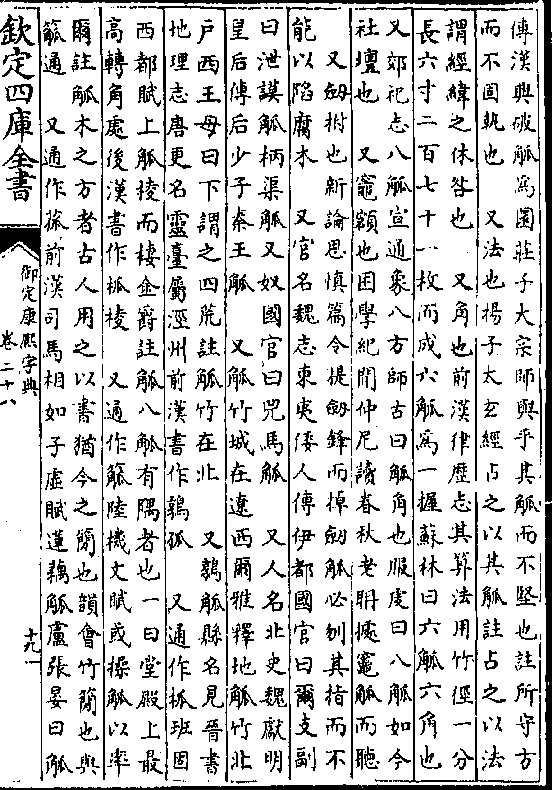 傳漢興破觚為圜莊子大宗師與乎其觚而不堅也註所守方
而不固執也　又法也揚子太玄經占之以其觚註占之以法
謂經緯之休咎也　又角也前漢律歷志其算法用竹徑一分
長六寸二百七十一枚而成六觚為一握蘇林曰六觚六角也
又郊祀志八觚宣通象八方師古曰觚角也服虔曰八觚如今
社壇也　又竈額也困學紀聞仲尼讀春秋老聃據竈觚而聽
又劒柎也新論思慎篇令提劒鋒而掉劒觚必刎其指而不
能以陷腐木　又官名魏志東夷倭人傳伊都國官曰爾支副
曰泄謨觚柄渠觚又奴國官曰兕馬觚　又人名北史魏獻明
皇后傳后少子秦王觚　又觚竹城在遼西爾雅釋地觚竹北
户西王母曰下謂之四荒註觚竹在北　又鶉觚縣名見晉書
地理志唐更名靈臺屬涇州前漢書作鶉孤　又通作柧班固
西都賦上觚稜而棲金爵註觚八觚有隅者也一曰堂殿上最
高轉角處後漢書作柧稜　又通作䉉陸機文賦或操觚以率
爾註觚木之方者古人用之以書猶今之簡也韻會竹簡也與
䉉通　又通作菰前漢司馬相如子虛賦蓮藕觚盧張晏曰觚
欽定四庫全書
御定康熙字典
卷二十八
十九